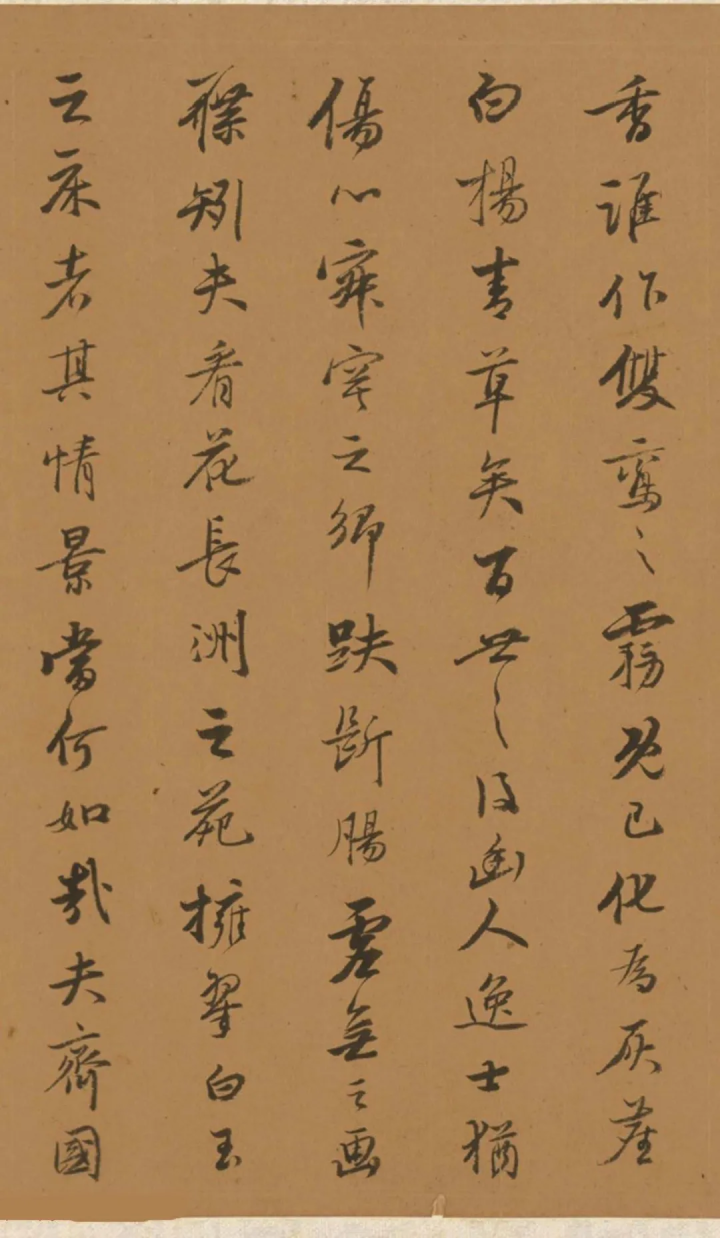 香誰作雙鸞之霧既已化為灰塵
白楊青草矣百世之後幽人逸士猶
傷心寂寞之趺斷腸虛無之画
屧矧夫看花長洲之苑擁翠白玉
之床者其情景當何如哉夫齊國